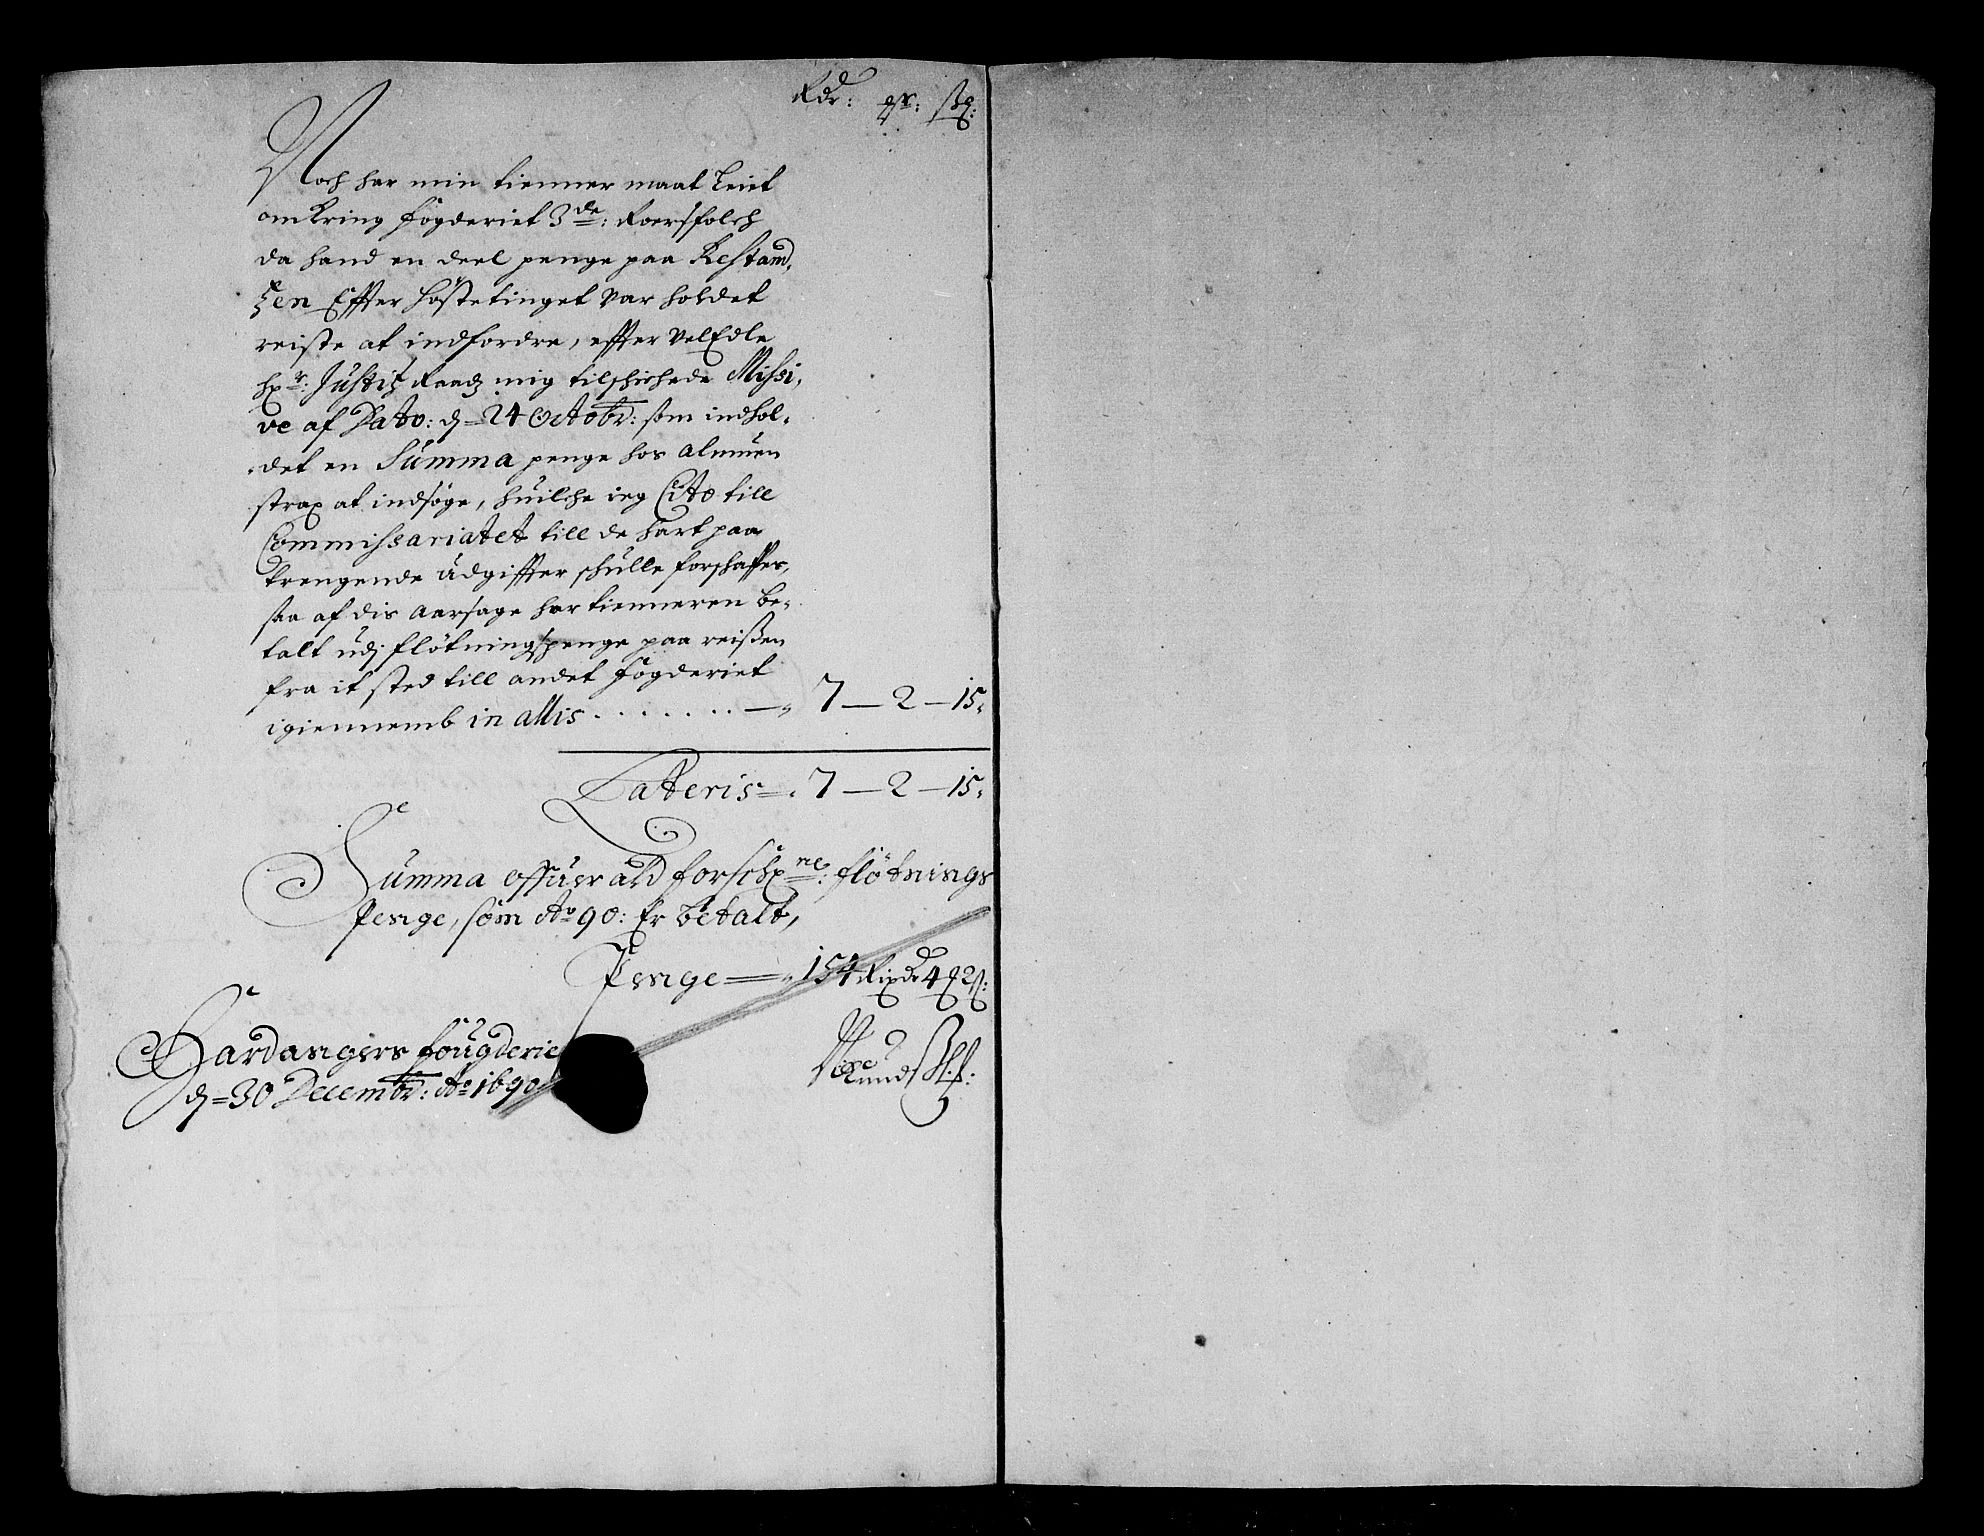 Rdr: qr: ß:
Noch har min tienner maat Leiet
omkring fögderiet 3de: Roersfolch
da hand en deel penge paa Restand,
zen Effter Höstetinget var holdet
reiste at indfordre, effter VelEdle
hr: Justitz Raadz mig tilschichede Missi,
ve af Dato: d= 24 Octobr: som indhol,
det en Summa penge hos almuen
strax at indsöge, huilche ieg Cito till
Commissariatet till de hart paa
trengende udgiffter schulle forschaffes,
saa af dis aarsage har tienneren be,
talt udj flötningspenge paa reisen
fra it sted till andet fögderiet
igiennemb in allis . . . . . . . — 7 — 2 — 15
Lateris = 7 — 2 — 15
Summa offuer alld forschrne: flötnings
Penge, som Ao 90: Er betalt,
Penge = 154 Rixdr 4 2 ß:
Hardangers fougderie
d= 30 Decembr: Ao 1690